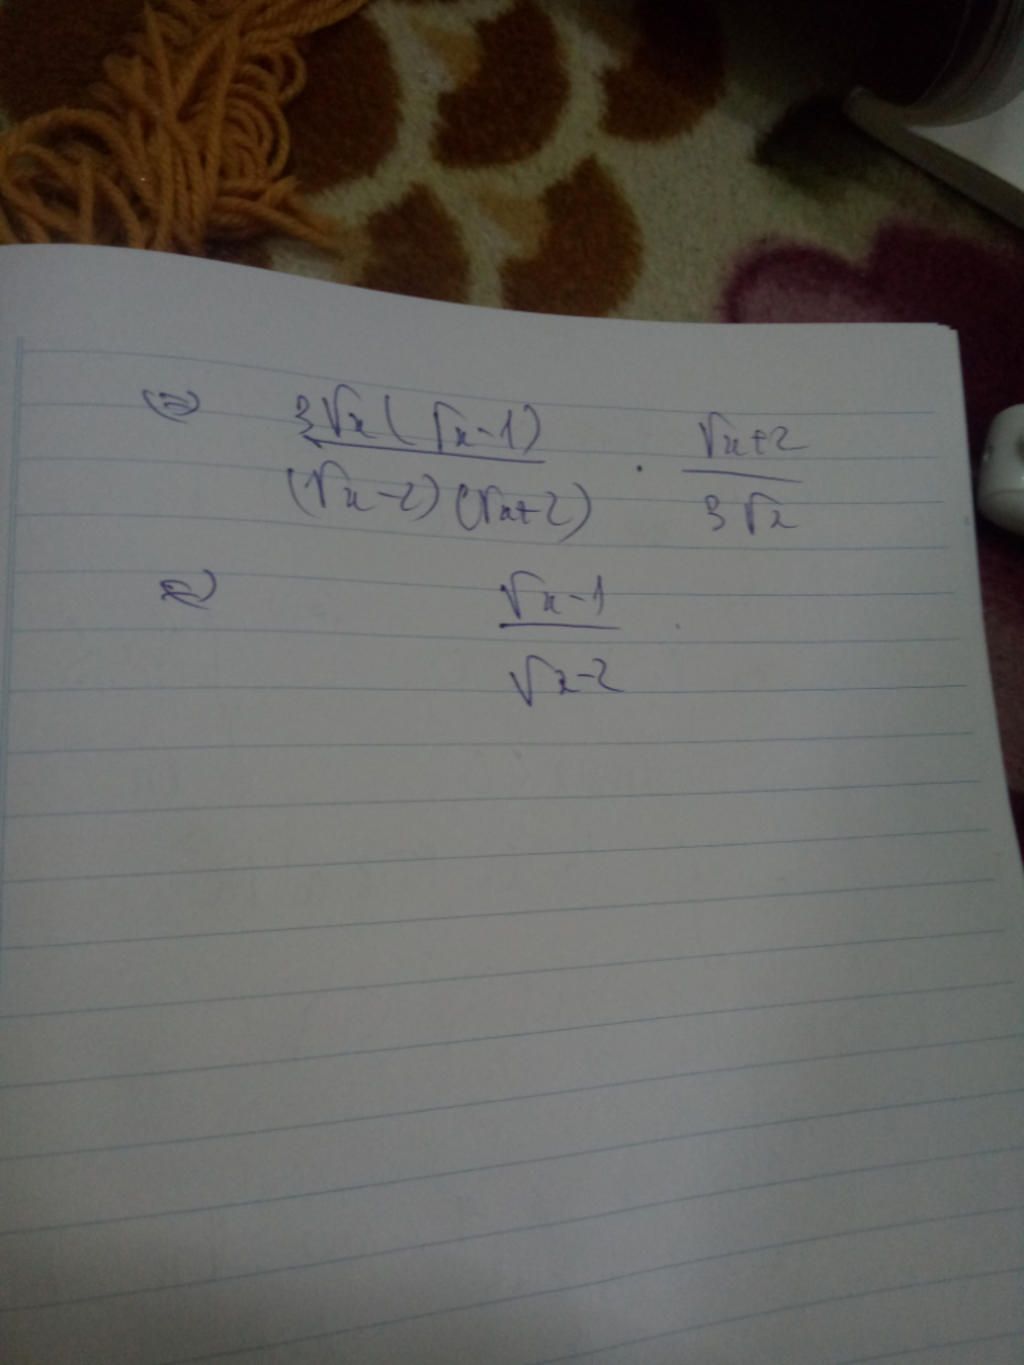 ⇔ 3√x(√x-1)/(√x-2)(√x+2) · √x+2/3√x
⇔ √x-1/√x-2